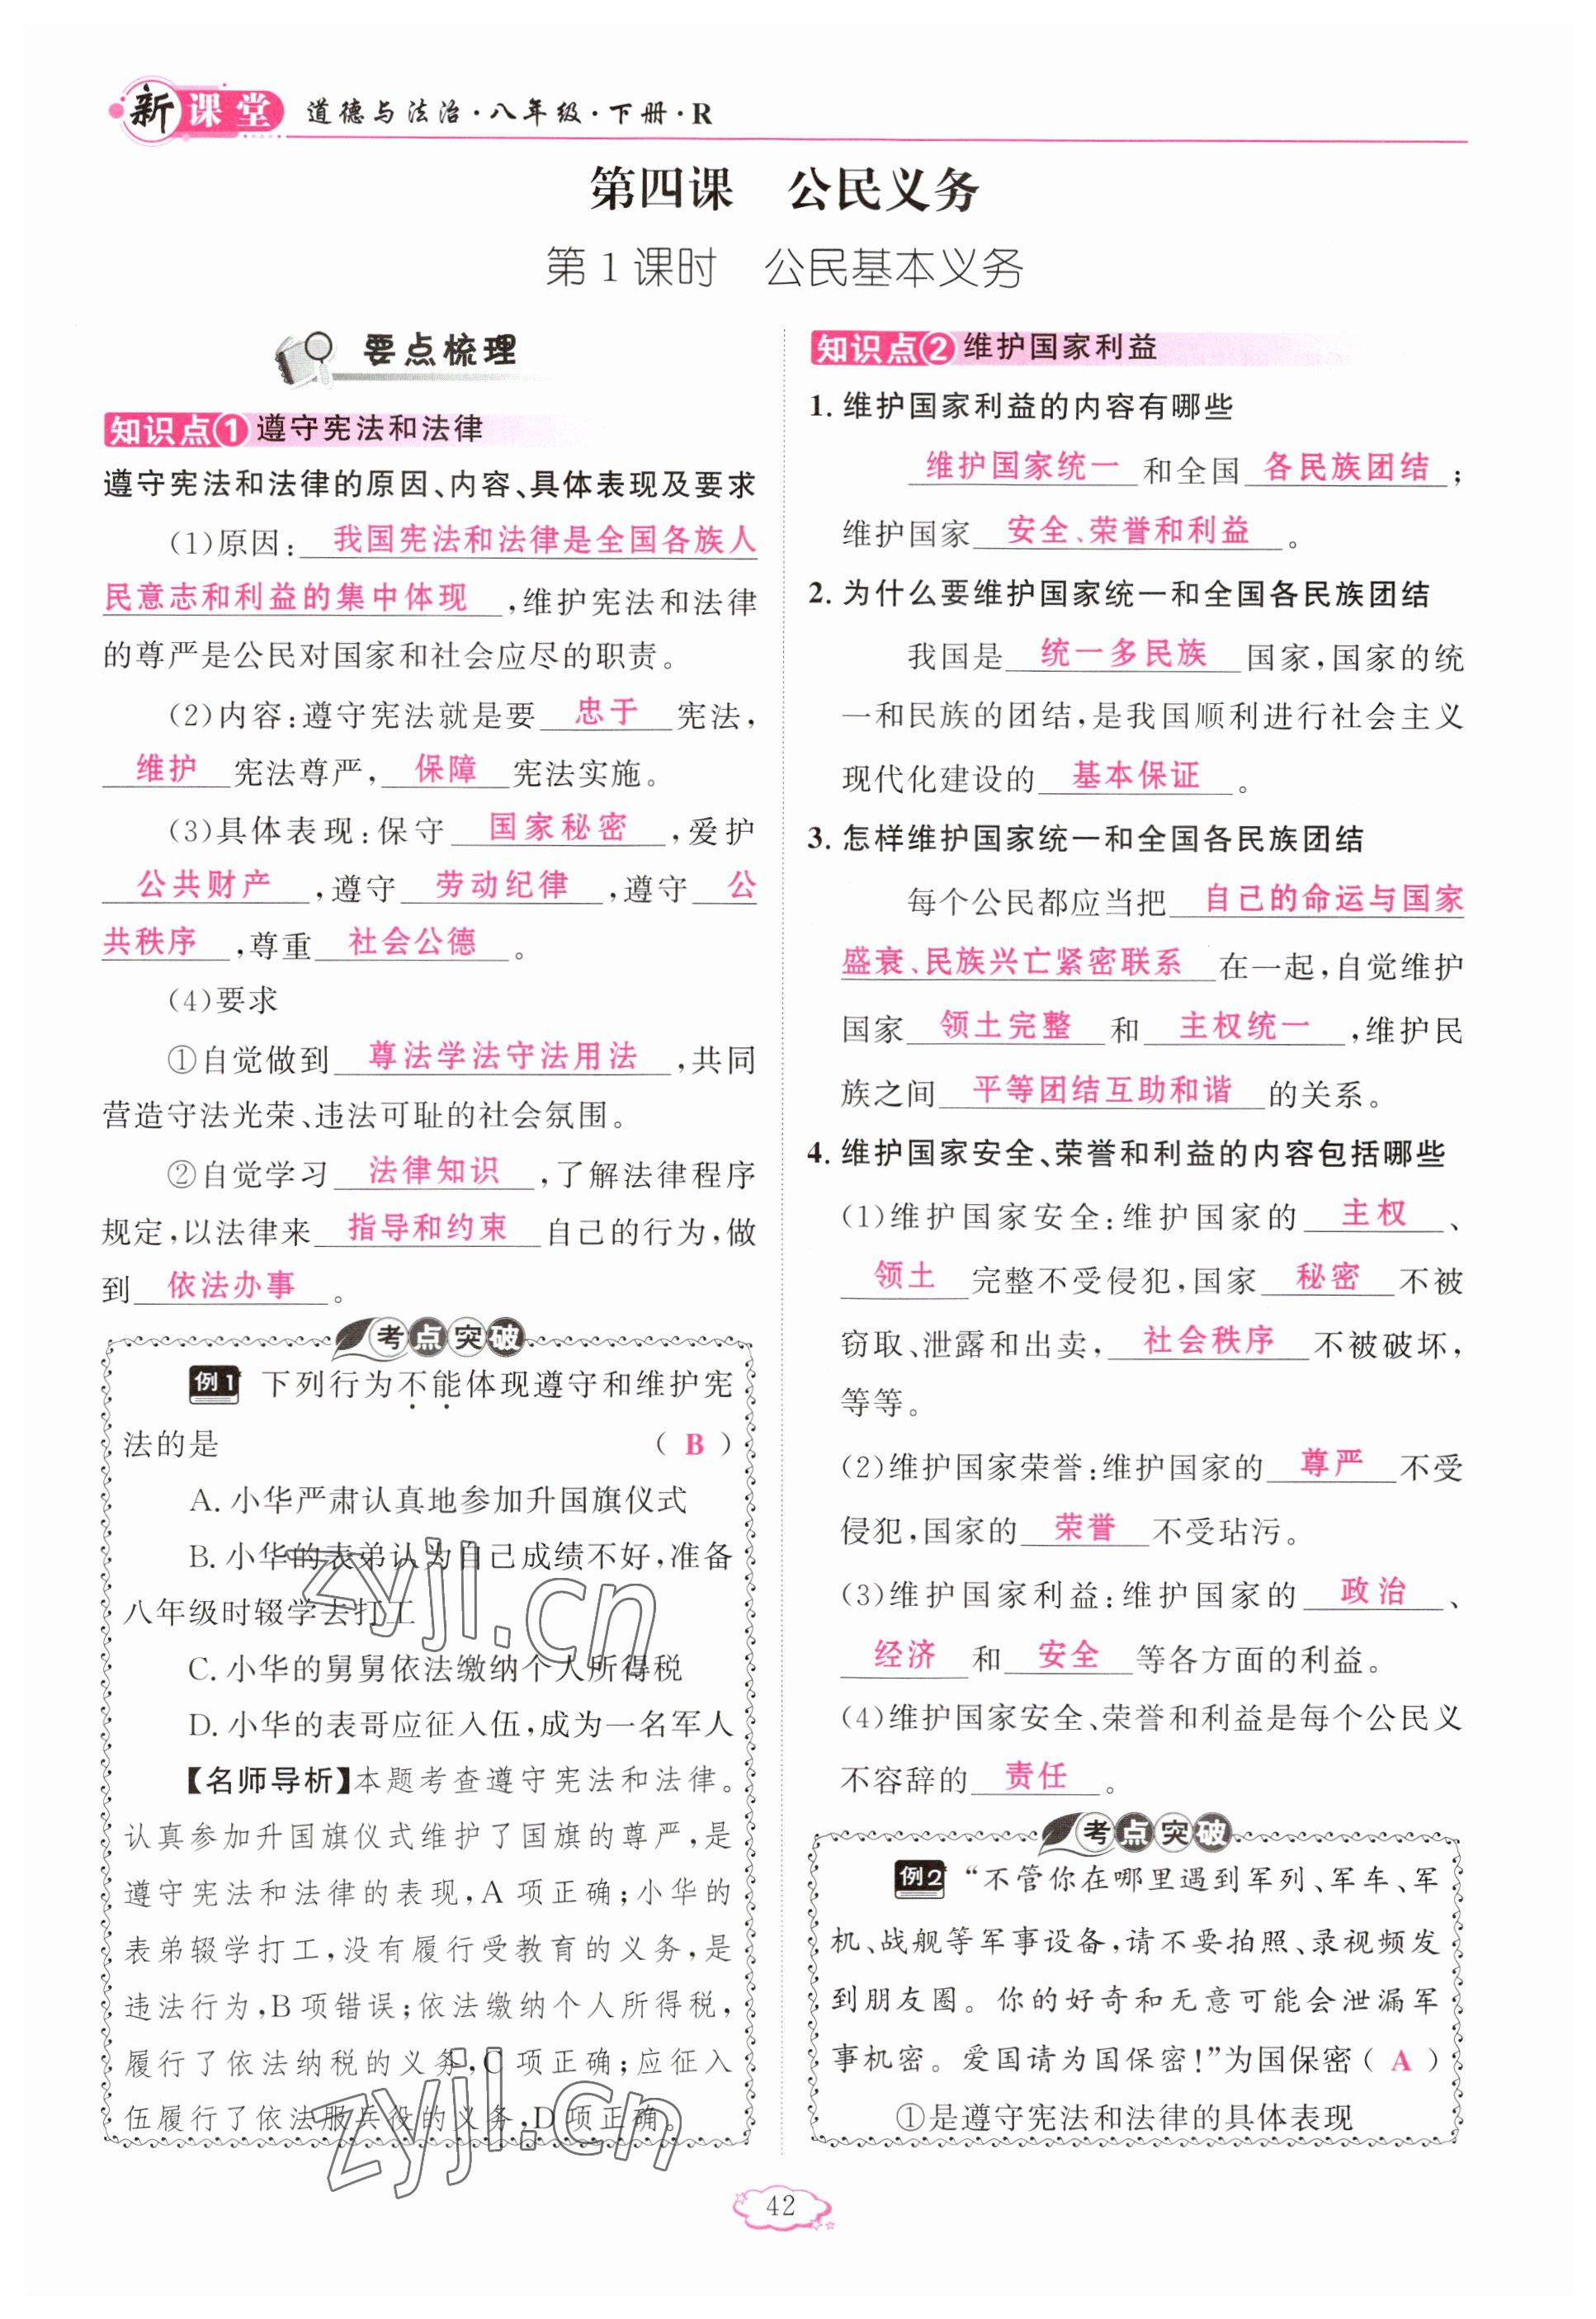 新课堂 道德与法治·八年级·下册·R
第四课 公民义务
第1课时 公民基本义务
要点梳理
知识点1 遵守宪法和法律
遵守宪法和法律的原因、内容、具体表现及要求
(1)原因:我国宪法和法律是全国各族人
民意志和利益的集中体现,维护宪法和法律
的尊严是公民对国家和社会应尽的职责。
(2)内容:遵守宪法就是要忠于宪法,
维护宪法尊严,保障宪法实施。
(3)具体表现:保守国家秘密,爱护
公共财产,遵守劳动纪律,遵守公
共秩序,尊重社会公德。
(4)要求
①自觉做到尊法学法守法用法,共同
营造守法光荣、违法可耻的社会氛围。
②自觉学习法律知识,了解法律程序
规定,以法律来指导和约束自己的行为,做
到依法办事。
考点突破
例1 下列行为不能体现遵守和维护宪
法的是 (B)
A. 小华严肃认真地参加升国旗仪式
B. 小华的表弟认为自己成绩不好,准备
八年级时辍学去打工
C. 小华的舅舅依法缴纳个人所得税
D. 小华的表哥应征入伍,成为一名军人
【名师导析】本题考查遵守宪法和法律。
认真参加升国旗仪式维护了国旗的尊严,是
遵守宪法和法律的表现,A项正确;小华的
表弟辍学打工,没有履行受教育的义务,是
违法行为,B项错误;依法缴纳个人所得税,
履行了依法纳税的义务,C项正确;应征入
伍履行了依法服兵役的义务,D项正确。
知识点2 维护国家利益
1. 维护国家利益的内容有哪些
维护国家统一和全国各民族团结;
维护国家安全、荣誉和利益。
2. 为什么要维护国家统一和全国各民族团结
我国是统一多民族国家,国家的统
一和民族的团结,是我国顺利进行社会主义
现代化建设的基本保证。
3. 怎样维护国家统一和全国各民族团结
每个公民都应当把自己的命运与国家
盛衰、民族兴亡紧密联系在一起,自觉维护
国家领土完整和主权统一,维护民
族之间平等团结互助和谐的关系。
4. 维护国家安全、荣誉和利益的内容包括哪些
(1)维护国家安全:维护国家的主权、
领土完整不受侵犯,国家秘密不被
窃取、泄露和出卖,社会秩序不被破坏,
等等。
(2)维护国家荣誉:维护国家的尊严不受
侵犯,国家的荣誉不受玷污。
(3)维护国家利益:维护国家的政治、
经济和安全等各方面的利益。
(4)维护国家安全、荣誉和利益是每个公民义
不容辞的责任。
考点突破
例2 “不管你在哪里遇到军列、军车、军
机、战舰等军事设备,请不要拍照、录视频发
到朋友圈。你的好奇和无意可能会泄漏军
事机密。爱国请为国保密!”为国保密(A)
①是遵守宪法和法律的具体表现
42
zyjl.cn
zyjl.cn